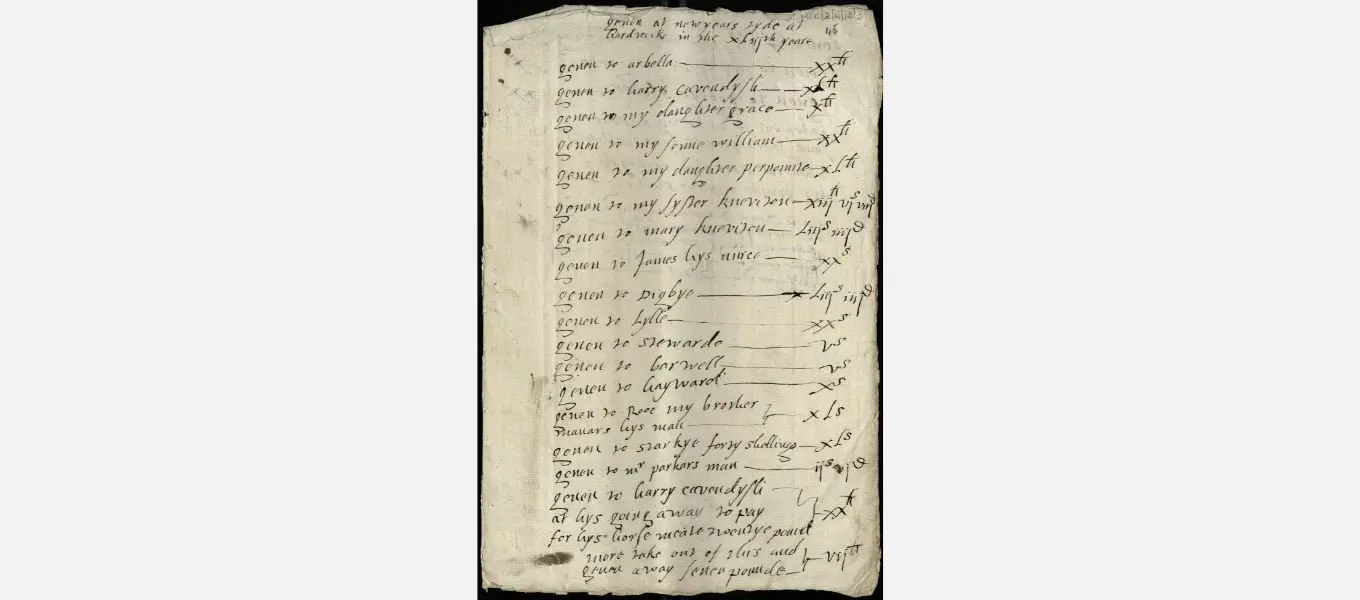 geuen at newyears tyde at
hardwick in the xLiijth yeare
geuen to arbella xxli
geuen to harry cavendysh xLli
geuen to my daughter grace xli
geuen to my sonne william xxli
geuen to my daughter perpointe xLli
geuen to my syster kneviton xiijli vjs viijd
geuen to mary kneviton Liijs iiijd
geuen to James hys nurce xxs
geuen to Digbye Liijs iiijd
geuen to Lylle xxs
geuen to stewarde vs
geuen to barwell vs
geuen to haywarde xs
geuen to Rooe my brother
hys man xLs
geuen to starkye forty shellings xLs
geuen to mr parkars man ijs vjd
geuen to harry cavendysh
at hys going away to pay
for hys horse meate twentye pound xxli
more take out of this and
geuen away seuen pounde vijli